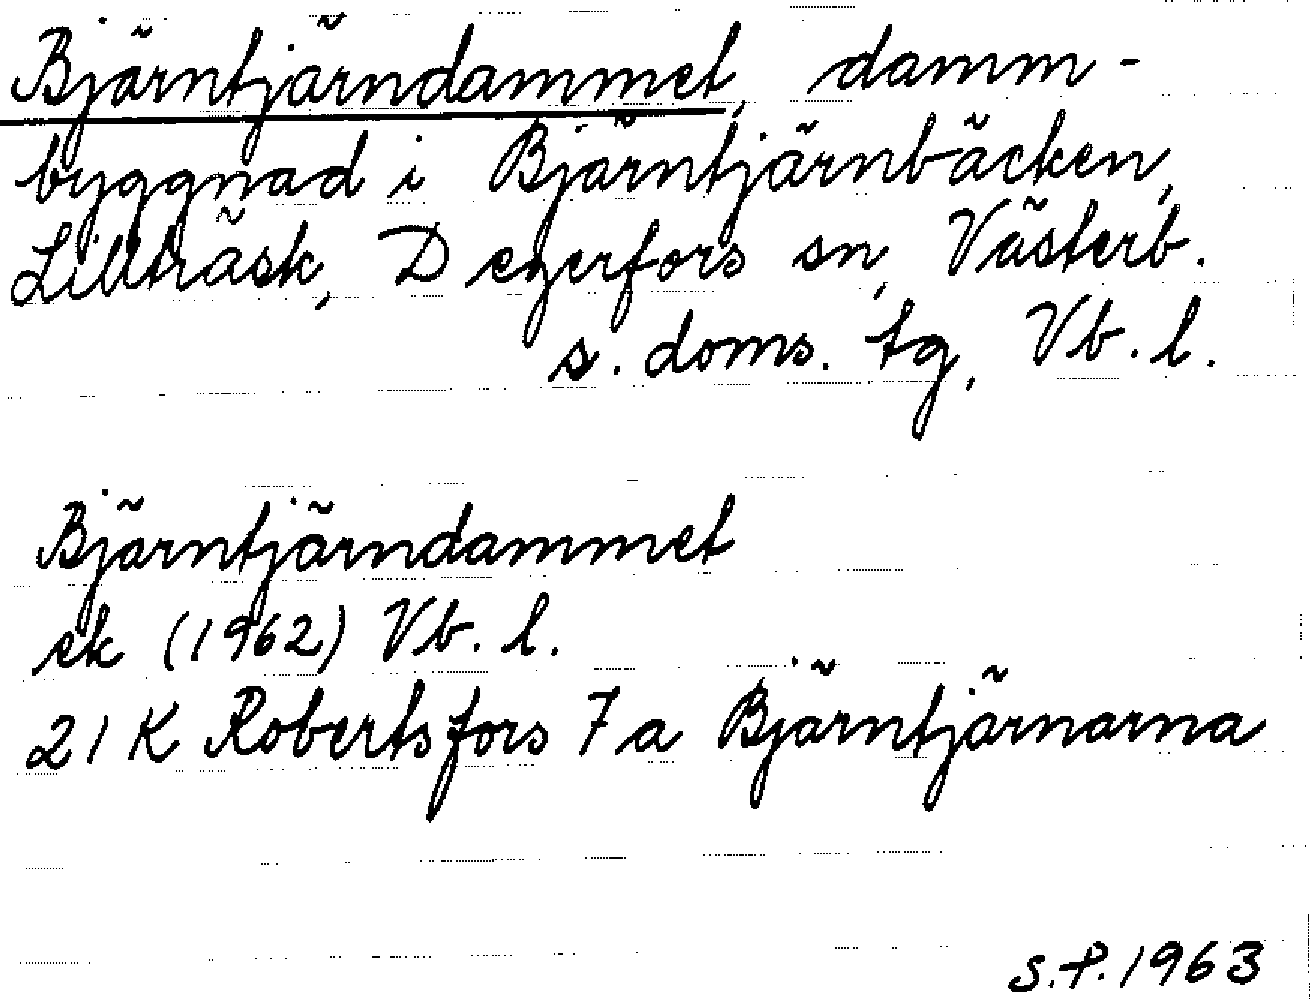 Bjärntjärndammet, damm-
byggnad i Bjärntjärnbäcken,
Lillträsk, Degerfors sn, Västerb.
s. doms. tg, Vb. l.
Bjärntjärndammet
ek (1962) Vb. l.
21 K Robertsfors 7 a Bjärntjärnarna
S.P. 1963